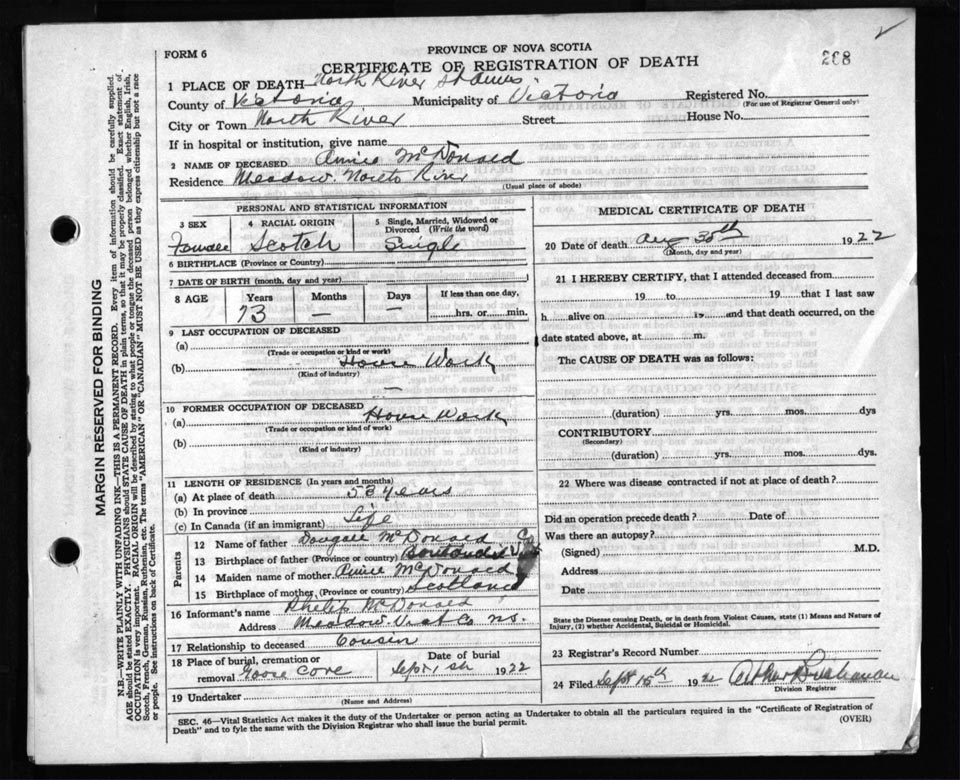 FORM 6
PROVINCE OF NOVA SCOTIA
CERTIFICATE OF REGISTRATION OF DEATH
208
1 PLACE OF DEATH North River St Anns.
County of Victoria Municipality of Victoria Registered No.
(For use of Registrar General only)
City or Town North River Street House No.
If in hospital or institution, give name
2 NAME OF DECEASED Annie McDonald
Residence Meadow. North River
(Usual place of abode)
PERSONAL AND STATISTICAL INFORMATION
3 SEX Female
4 RACIAL ORIGIN Scotch
5 Single, Married, Widowed or Divorced (Write the word) Single
6 BIRTHPLACE (Province or Country)
7 DATE OF BIRTH (month, day and year)
8 AGE Years Months Days If less than one day.
73 — — hrs. or min.
9 LAST OCCUPATION OF DECEASED
(a)
(Trade or occupation or kind or work)
(b) House Work
(Kind of industry)
—
10 FORMER OCCUPATION OF DECEASED
(a) House Work
(Trade or occupation or kind or work)
(b)
(Kind of industry)
11 LENGTH OF RESIDENCE (In years and months)
(a) At place of death 53 years
(b) In province
(c) In Canada (if an immigrant) Life
Parents
12 Name of father Dougall McDonald
13 Birthplace of father (Province or country)
14 Maiden name of mother Annie McDonald
15 Birthplace of mother (Province or country) Scotland
16 Informant's name Philip McDonald
Address Meadow Vict Co NS.
17 Relationship to deceased Cousin
18 Place of burial, cremation or removal Goose Cove
Date of burial Sept 1st 1922
19 Undertaker
(Name and Address)
MEDICAL CERTIFICATE OF DEATH
20 Date of death Aug 30th 1922
(Month, day and year)
21 I HEREBY CERTIFY, that I attended deceased from
19 to 19 that I last saw
h alive on 19 and that death occurred, on the
date stated above, at m.
The CAUSE OF DEATH was as follows:
(duration) yrs. mos. dys
CONTRIBUTORY
(Secondary)
(duration) yrs. mos. dys.
22 Where was disease contracted if not at place of death?
Did an operation precede death? Date of
Was there an autopsy?
(Signed) M.D.
Address
Date
State the Disease causing Death, or in death from Violent Causes, state (1) Means and Nature of Injury, (2) whether Accidental, Suicidal or Homicidal.
23 Registrar's Record Number
24 Filed Sept 15th 1922 Arthur Buchanan
Division Registrar
SEC. 46—Vital Statistics Act makes it the duty of the Undertaker or person acting as Undertaker to obtain all the particulars required in the "Certificate of Registration of
Death" and to fyle the same with the Division Registrar who shall issue the burial permit.
(OVER)
MARGIN RESERVED FOR BINDING
N.B.—WRITE PLAINLY WITH UNFADING INK—THIS IS A PERMANENT RECORD. Every item of information should be carefully supplied.
AGE should be stated EXACTLY. PHYSICIANS should STATE CAUSE OF DEATH in plain terms, so that it may be properly classified. Exact statement of
OCCUPATION is very important. RACIAL ORIGIN will be described by stating to what people or tongue the deceased person belonged whether English, Irish,
Scotch, French, German, Russian, Ruthenian, etc. The terms "AMERICAN" OR "CANADIAN" MUST NOT BE USED as they express citizenship but not a race
or people. See instructions on back of Certificate.